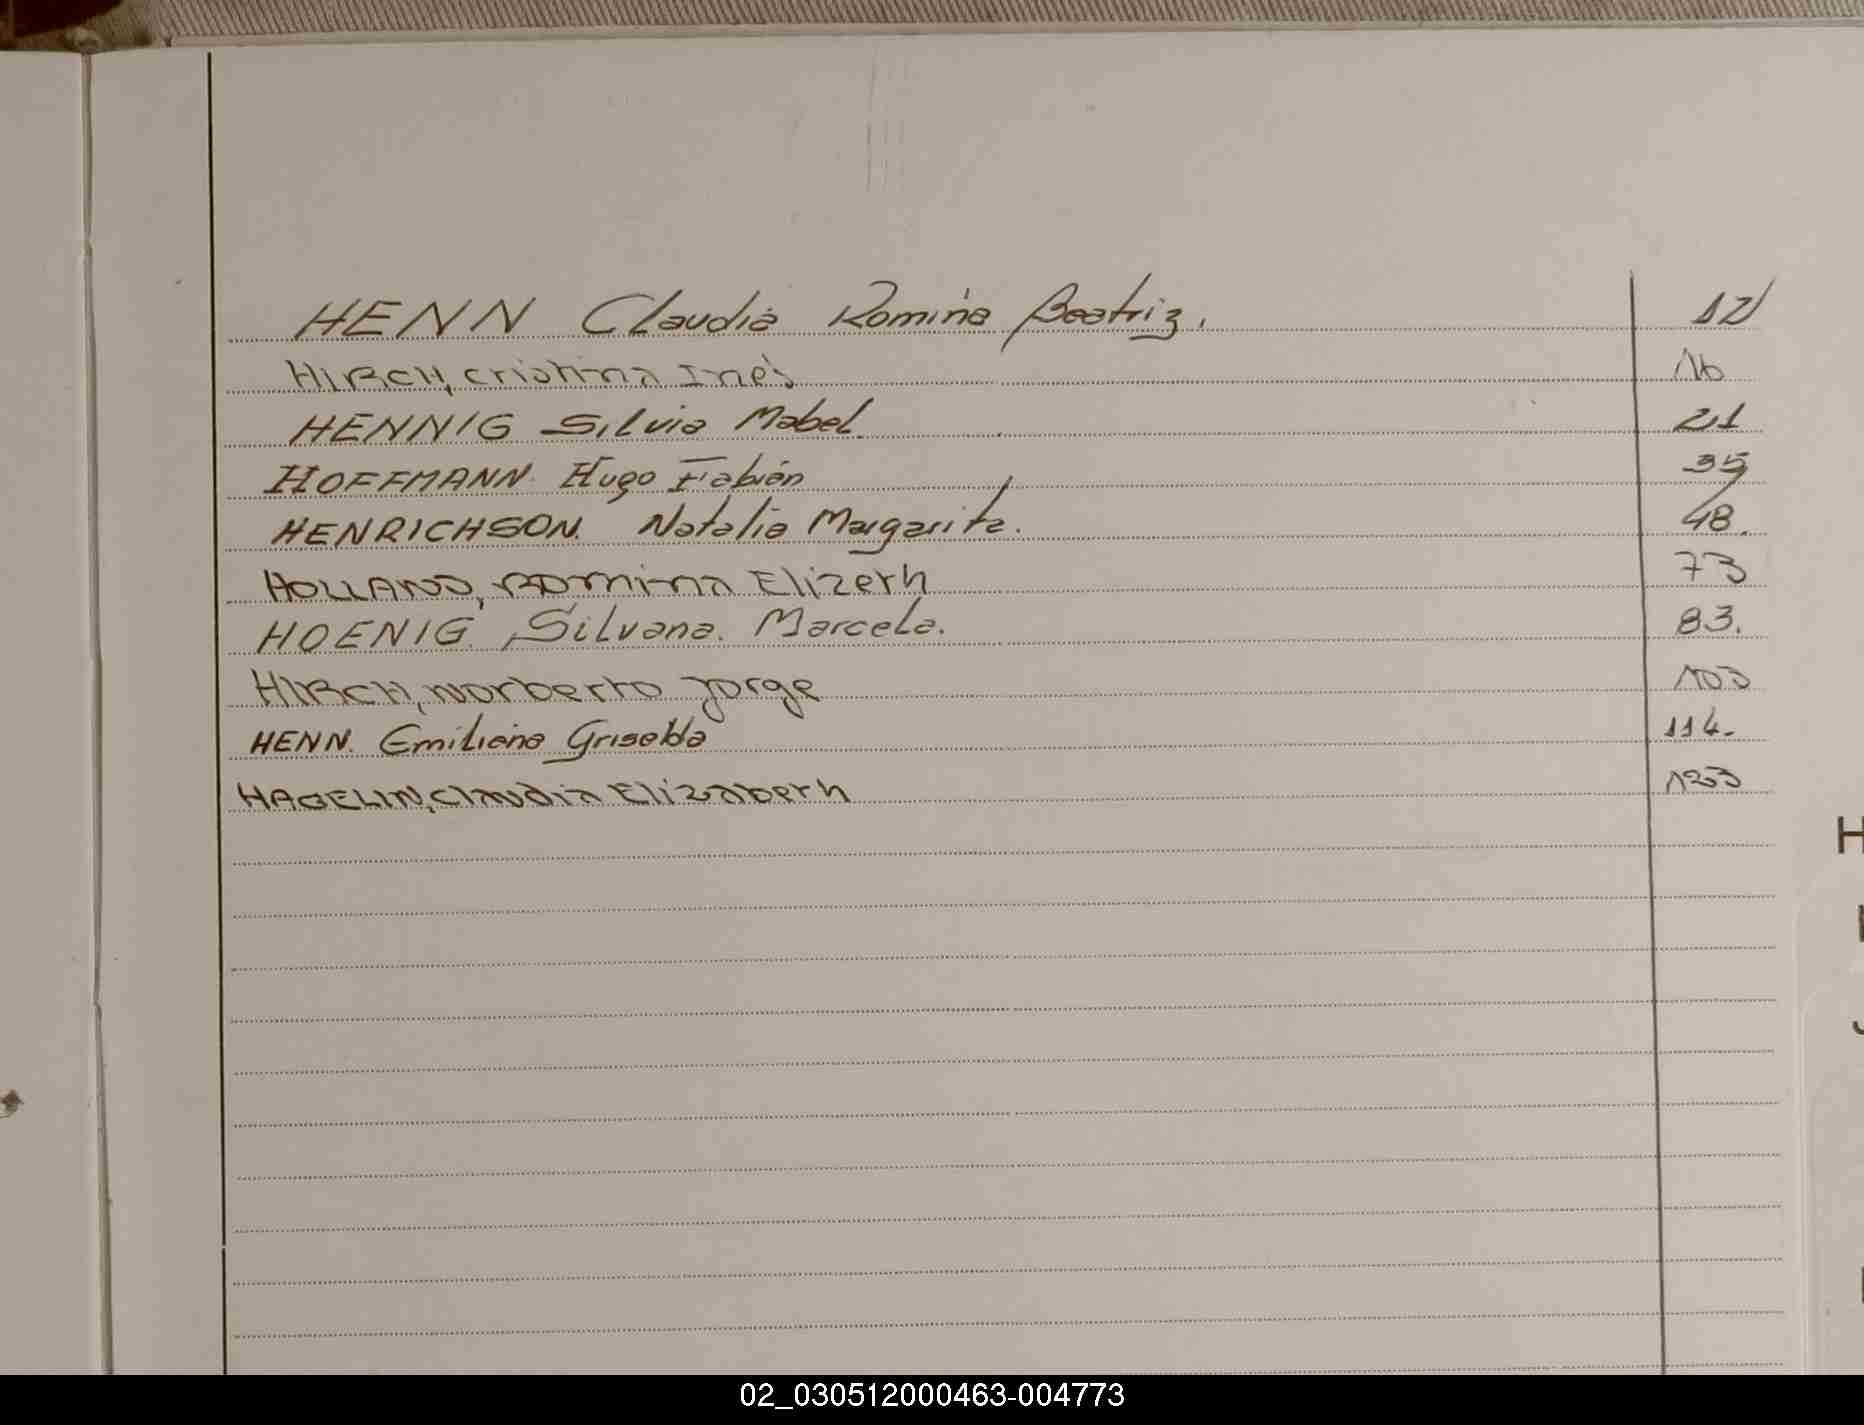 HENN Claudia Romina Beatriz. 12
HIRCH, cristina Inés 16
HENNIG Silvia Mabel. 21
HOFFMANN Hugo Fabián 35
HENRICHSON. Natalia Margarita. 48.
HOLLAND, Romina Elizeth 73
HOENIG, Silvana. Marcela. 83.
HIRCH, Norberto Jorge 103
HENN. Emiliana Griselda 114.
HAGELIN, Claudia Elizabeth 123
H
J
02_030512000463-004773